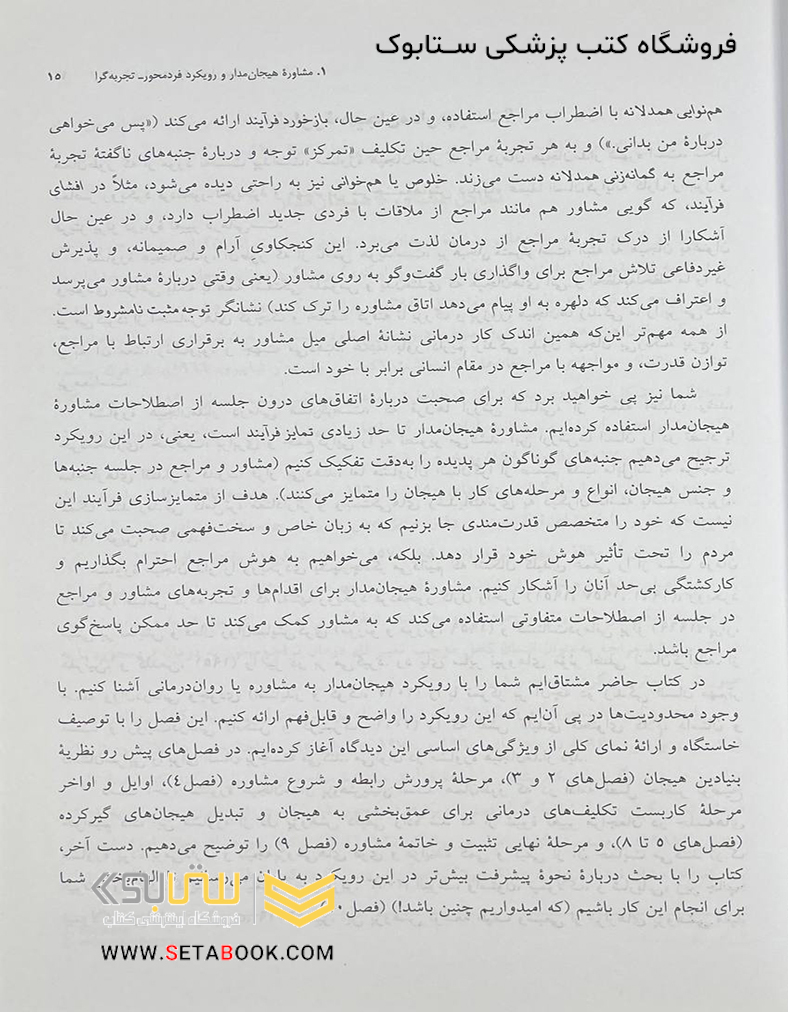 فروشگاه کتب پزشکی ستابوک
۱. مشاورهٔ هیجان‌مدار و رویکرد فردمحور- تجربه‌گرا ۱۵
هم‌نوایی همدلانه با اضطراب مراجع استفاده، و در عین حال، بازخورد فرآیند ارائه می‌کند («پس می‌خواهی
دربارهٔ من بدانی.») و به هر تجربهٔ مراجع حین تکلیف «تمرکز» توجه و دربارهٔ جنبه‌های ناگفتهٔ تجربهٔ
مراجع به گمانه‌زنی همدلانه دست می‌زند. خلوص یا هم‌خوانی نیز به راحتی دیده می‌شود، مثلاً در افشای
فرآیند، که گویی مشاور هم مانند مراجع از ملاقات با فردی جدید اضطراب دارد، و در عین حال
آشکارا از درک تجربهٔ مراجع از درمان لذت می‌برد. این کنجکاویِ آرام و صمیمانه، و پذیرش
غیردفاعی تلاش مراجع برای واگذاری بار گفت‌وگو به روی مشاور (یعنی وقتی دربارهٔ مشاور می‌پرسد
و اعتراف می‌کند که دلهره به او پیام می‌دهد اتاق مشاوره را ترک کند) نشانگر توجه مثبت نامشروط است.
از همه مهم‌تر این‌که همین اندک کار درمانی نشانهٔ اصلی میل مشاور به برقراری ارتباط با مراجع،
توازن قدرت، و مواجهه با مراجع در مقام انسانی برابر با خود است.
شما نیز پی خواهید برد که برای صحبت دربارهٔ اتفاق‌های درون جلسه از اصطلاحات مشاورهٔ
هیجان‌مدار استفاده کرده‌ایم. مشاورهٔ هیجان‌مدار تا حد زیادی تمایز فرآیند است، یعنی، در این رویکرد
ترجیح می‌دهیم جنبه‌های گوناگون هر پدیده را به‌دقت تفکیک کنیم (مشاور و مراجع در جلسه جنبه‌ها
و جنس هیجان، انواع و مرحله‌های کار با هیجان را متمایز می‌کنند). هدف از متمایزسازی فرآیند این
نیست که خود را متخصص قدرت‌مندی جا بزنیم که به زبان خاص و سخت‌فهمی صحبت می‌کند تا
مردم را تحت تأثیر هوش خود قرار دهد. بلکه، می‌خواهیم به هوش مراجع احترام بگذاریم و
کارکشتگی بی‌حد آنان را آشکار کنیم. مشاورهٔ هیجان‌مدار برای اقدام‌ها و تجربه‌های مشاور و مراجع
در جلسه از اصطلاحات متفاوتی استفاده می‌کند که به مشاور کمک می‌کند تا حد ممکن پاسخ‌گوی
مراجع باشد.
در کتاب حاضر مشتاق‌ایم شما را با رویکرد هیجان‌مدار به مشاوره یا روان‌درمانی آشنا کنیم. با
وجود محدودیت‌ها در پی آن‌ایم که این رویکرد را واضح و قابل‌فهم ارائه کنیم. این فصل را با توصیف
خاستگاه و ارائهٔ نمای کلی از ویژگی‌های اساسی این دیدگاه آغاز کرده‌ایم. در فصل‌های پیش رو نظریهٔ
بنیادین هیجان (فصل‌های ۲ و ۳)، مرحلهٔ پرورش رابطه و شروع مشاوره (فصل٤)، اوایل و اواخر
مرحلهٔ کاربست تکلیف‌های درمانی برای عمق‌بخشی به هیجان و تبدیل هیجان‌های گیرکرده
(فصل‌های ٥ تا ۸)، و مرحلهٔ نهایی تثبیت و خاتمهٔ مشاوره (فصل ۹) را توضیح می‌دهیم. دست آخر،
کتاب را با بحث دربارهٔ نحوهٔ پیشرفت بیش‌تر در این رویکرد به پایان می‌رسانیم شما
برای انجام این کار باشیم (که امیدواریم چنین باشد!) (فصل
ستابوک
فروشگاه اینترنتی کتاب
WWW.SETABOOK.COM